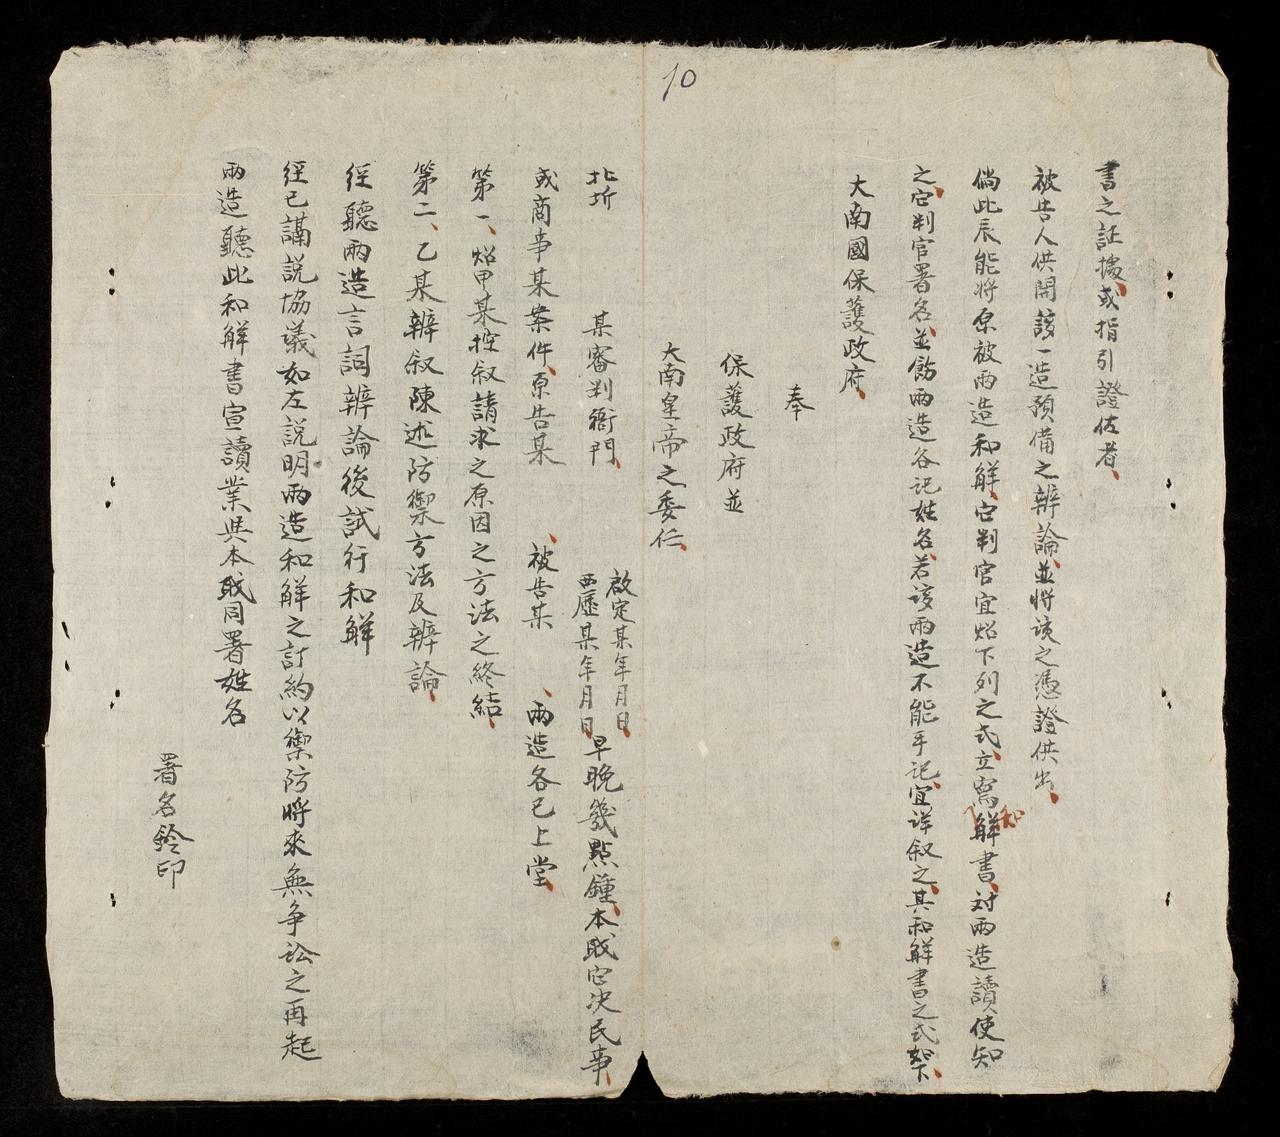 10
書之証據或指引證佐者、
被告人供開該一造預備之辨論、並將該之憑證供出、
倘此辰能將原被兩造和解、它判官宜炤下列之式、立寫解書、対兩造讀使知
和
之、它判官署名、並飭兩造各記姓名、若該兩造不能手記、宜详叙之、其和解書之式如下、
大南國保護政府、
奉
保護政府並
大南皇帝之委任、
啟定某年月日
北圻 某審判衙門、 西歷某年月日早晚幾點鐘、本職它决民事、
或商事某案件、原告某 、被告某 、兩造各已上堂、
第一、炤甲某控叙請求之原因之方法之終結、
第二、乙某辨叙陳述防禦方法及辨論、
經聽兩造言詞辨論後試行和解
經已講説協議如左説明兩造和解之訂約以禦防將來無争訟之再起
兩造聽此和解書宣讀業與本職同署姓名
署名鈐印